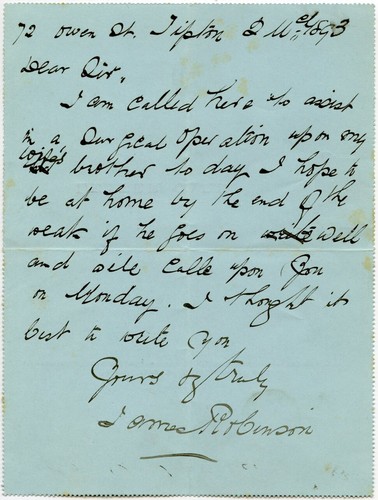 72 Owen St. Tipton 2 1893
Dear Sir,
I am called here to assist
in a Surgical operation upon my
wife's brother to day I hope to
be at home by the end of the
weak if he goes on well
and will calle upon you
on Monday. I thought it
best to write you
Yours Truly
James Robinson